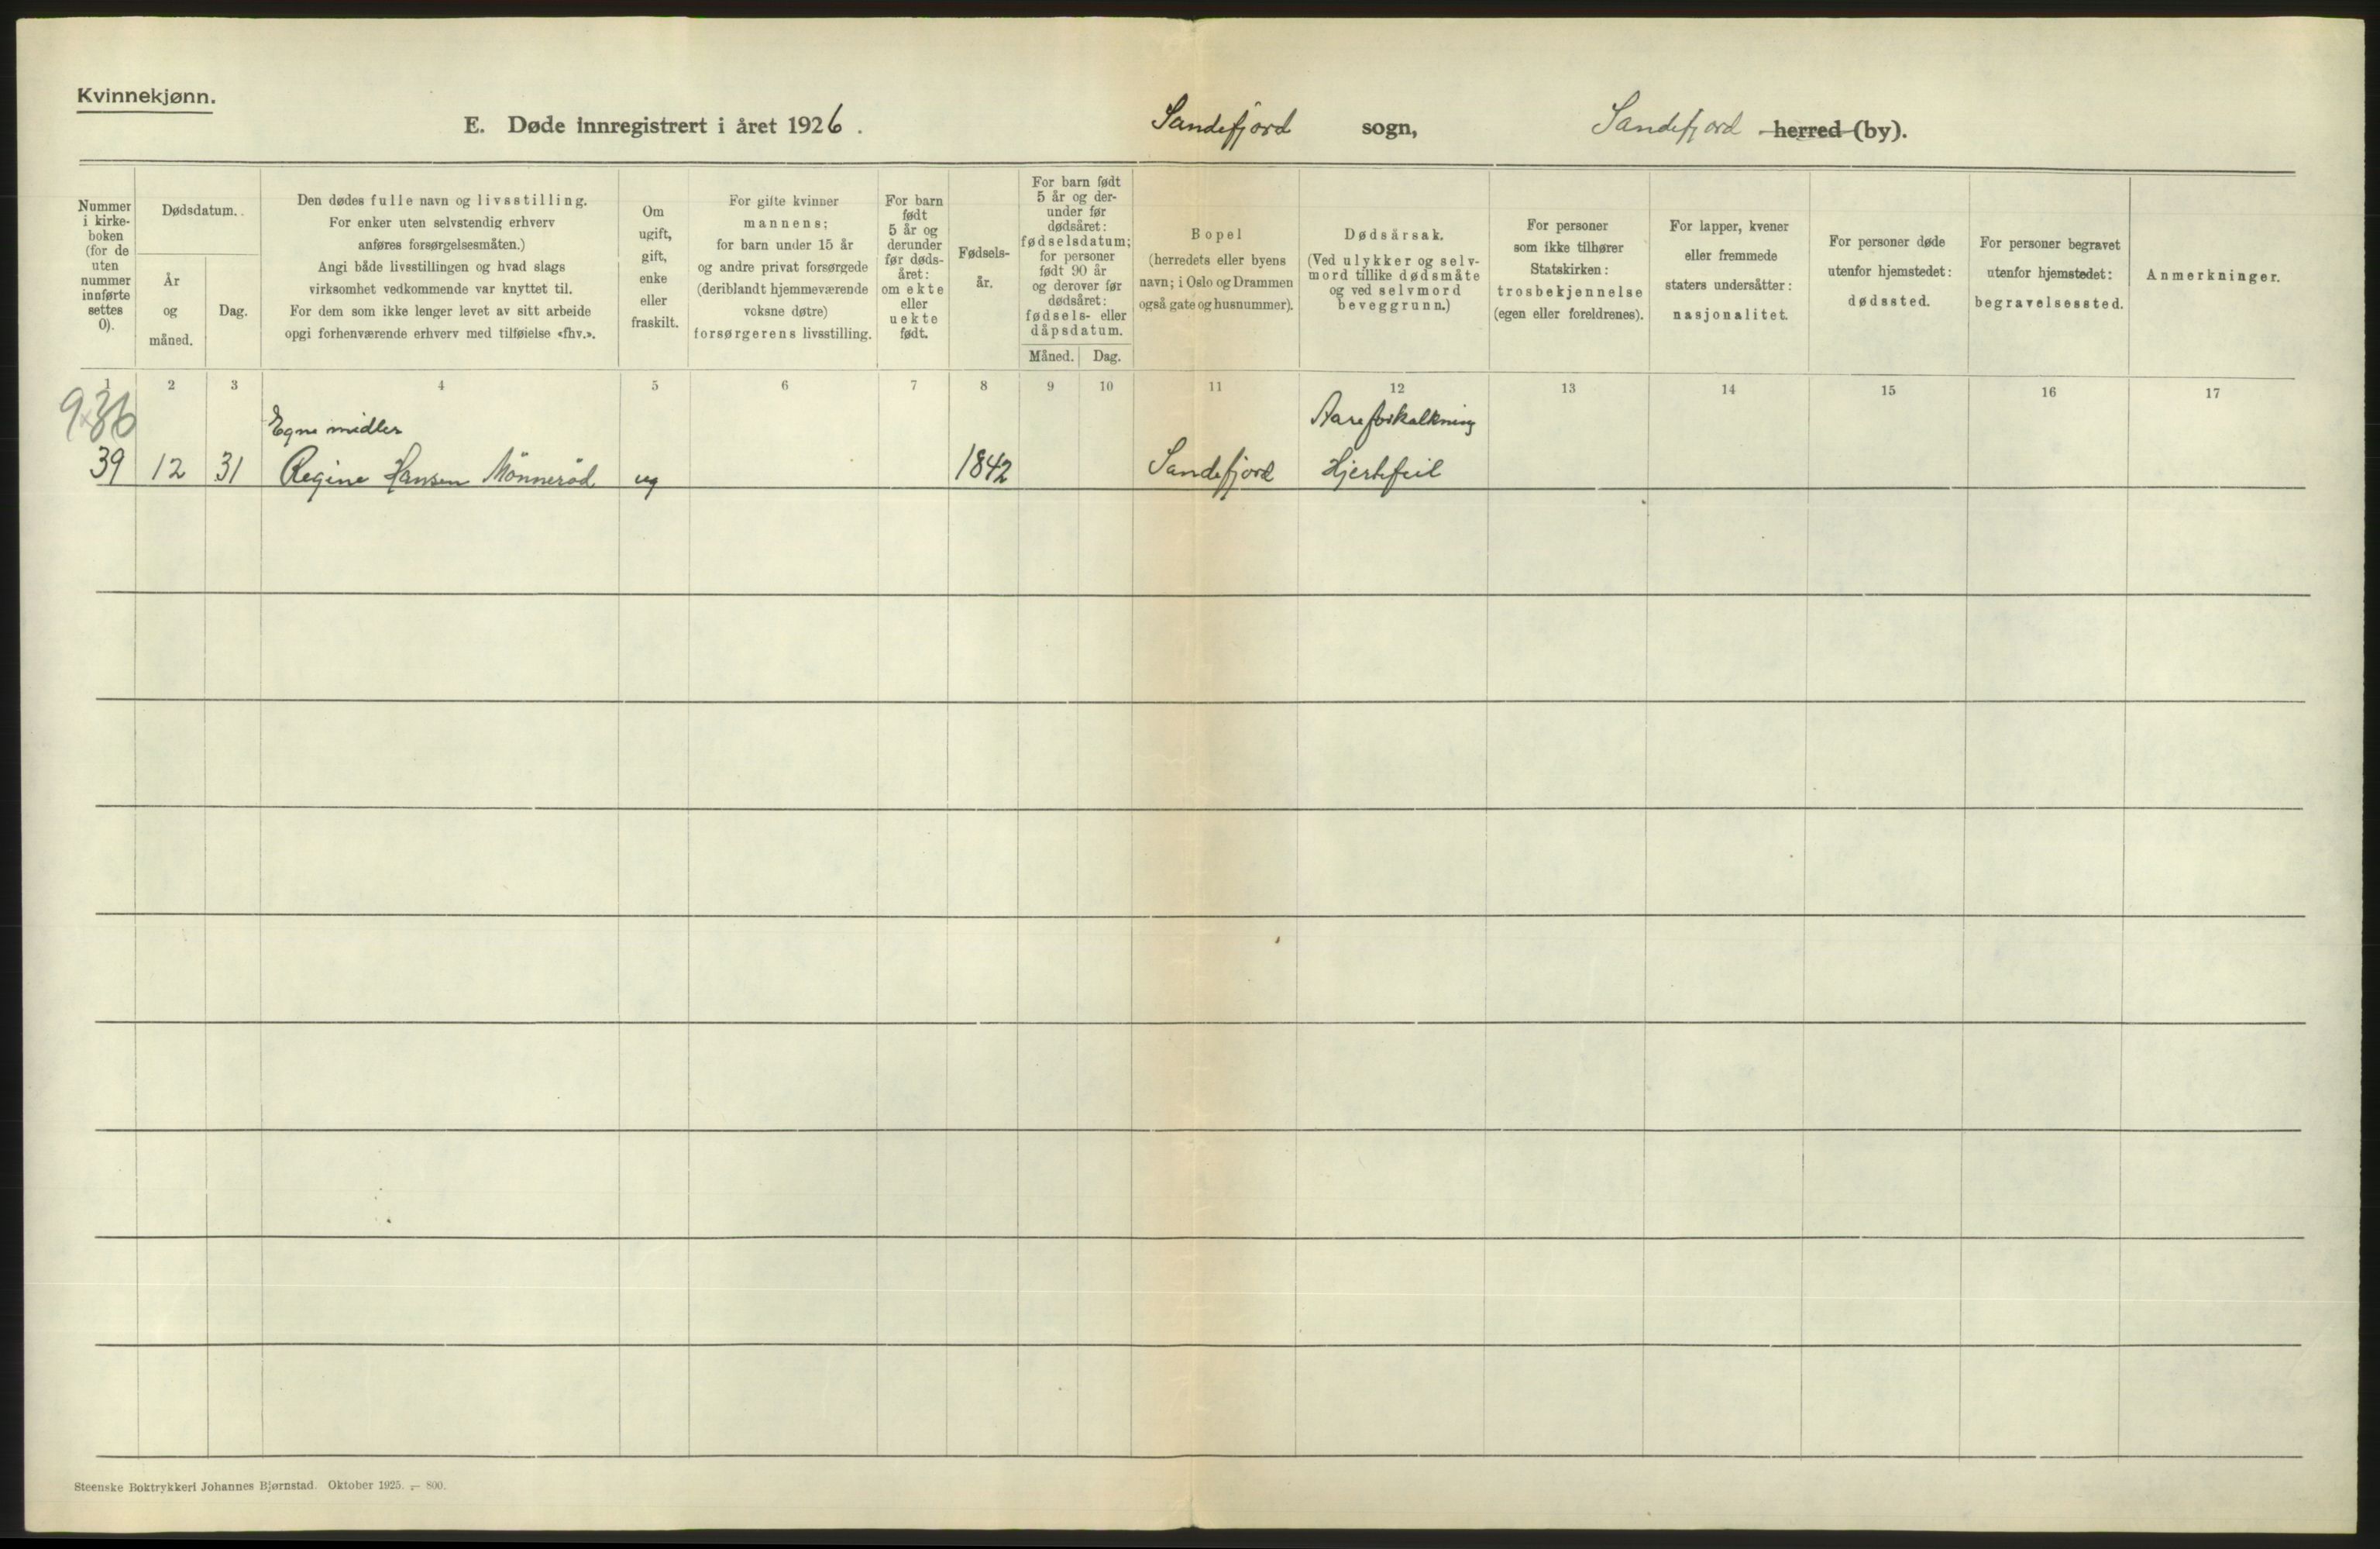 Kvinnekjønn.
E. Døde innregistrert i året 1926.
Sandefjord sogn,
Sandefjord herred (by).
Nummer
i kirke-
boken
(for de
uten
nummer
innførte
settes
0).
Dødsdatum.
År
og
måned.
Dag.
Den dødes fulle navn og livsstilling.
For enker uten selvstendig erhverv
anføres forsørgelsesmåten.)
Angi både livsstillingen og hvad slags
virksomhet vedkommende var knyttet til.
For dem som ikke lenger levet av sitt arbeide
opgi forhenværende erhverv med tilføielse «fhv.».
Om
ugift,
gift,
enke
eller
fraskilt.
For gifte kvinner
mannens;
for barn under 15 år
og andre privat forsørgede
(deriblandt hjemmeværende
voksne døtre)
forsørgerens livsstilling.
For barn
født
5 år og
derunder
før døds-
året:
om ekte
eller
uekte
født.
Fødsels-
år.
For barn født
5 år og der-
under før
dødsåret:
fødselsdatum;
for personer
født 90 år
og derover før
dødsåret:
fødsels- eller
dåpsdatum.
Måned. Dag.
Bopel
(herredets eller byens
navn; i Oslo og Drammen
også gate og husnummer).
Dødsårsak.
(Ved ulykker og selv-
mord tillike dødsmåte
og ved selvmord
beveggrunn.)
For personer
som ikke tilhører
Statskirken:
trosbekjennelse
(egen eller foreldrenes).
For lapper, kvener
eller fremmede
staters undersåtter:
nasjonalitet.
For personer døde
utenfor hjemstedet:
dødssted.
For personer begravet
utenfor hjemstedet:
begravelsessted.
Anmerkninger.
1 2 3 4 5 6 7 8 9 10 11 12 13 14 15 16 17
Egne midler Aareforkalkning
39 12 31 Regine Hansen Mønnerød ug 1842 Sandefjord Hjertefeil
Steenske Boktrykkeri Johannes Bjørnstad. Oktober 1925. — 800.